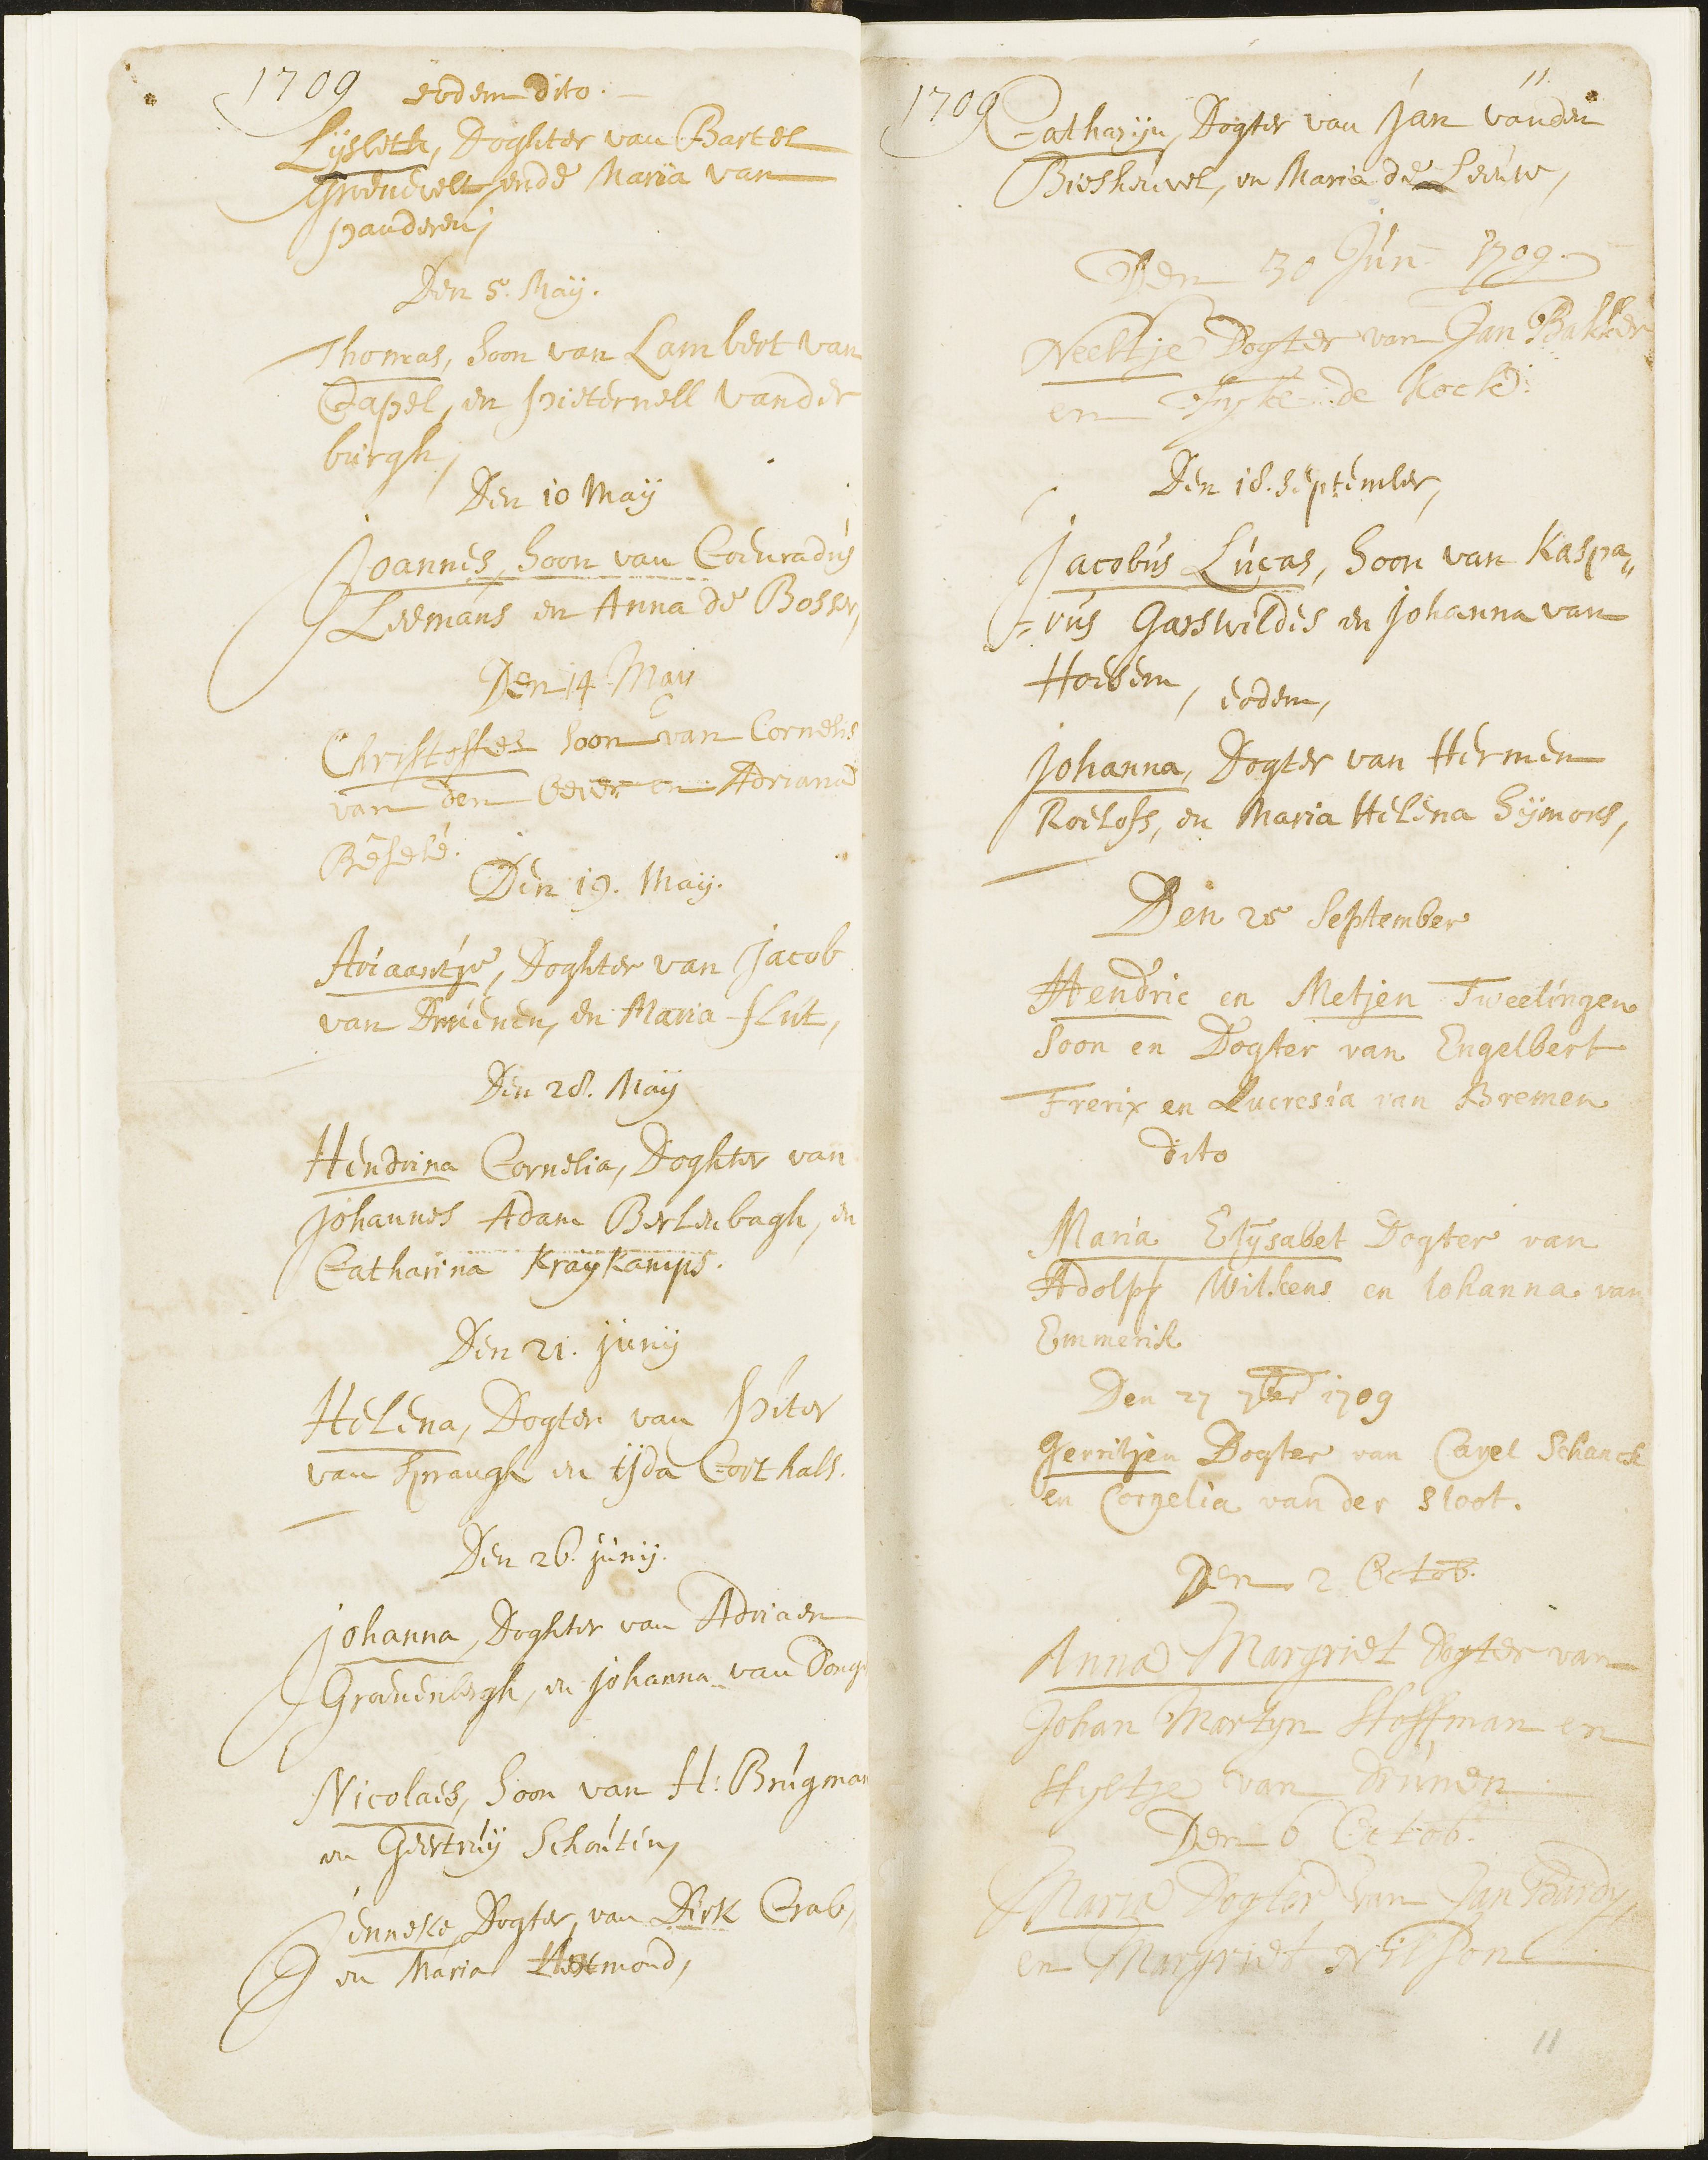 1709 eodem dito.
Lijsbeth, Doghter van Bartel
Groenevelt, ende Maria van
panderen,
Den 5. Maij.
Thomas, Soon van Lambert van
Capel, en pieternell vander
burgh,
Den 10 Maij
Joannes, Soon van Coenradus
Leemans en Anna de Bosser,
Den 14 Maij
Christoffel Soon van Cornelis
van den Oever en Adriana
Den 19. Maij.
Ariaantje, Doghter van Jacob
van Druenen, en Maria Slut,
Den 28. Maij
Hendrina Cornelia, Doghter van
Johannes Adam Berlenbagh, en
Catharina Kraykamps.
Den 21. junij
Helena, Dogter van Piter
van Sprangh en ijda Corthals.
Den 26. junij.
Johanna, Doghter van Adriaen
Groenenbergh, en Johanna van Dong
Nicolaes, Soon van H: Brugman
en Geertruij Schouten,
Jenneke Dogter, van Dirk Crab,
en Maria
11
1709 Catharijn, Dogter van Jan vanden
Biesheuvel, en Maria de Leeuw,
Den 30 Jun 1709.
Neeltje Dogter van Jan Bakker
en Fyke de Kock.
Den 18. september,
Jacobus Lucas, Soon van Kaspa„
rus Gasswildes en Johanna van
Hoesem, eodem,
Johanna, Dogter van Hermen
Roelofs, en Maria Helena Sijmons,
Den 25 September
Hendric en Metjen Tweelingen
Soon en Dogter van Engelbert
Frerix en Lucresia van Bremen
dito
Maria Elijsabet Dogter van
Adolpf Wilkens en Iohanna van
Emmerik
Den 27 7ber 1709
Gerritjen Dogter van Carel Schanck
en Cornelia van der Sloot.
Den 2 Octob.
Anna Margriet Dogter van
Johan Martyn Hoffman en
Hyltje van Drunen
Den 6 Octob.
Maria Dogter van Jan Bardy,
en Margriet Nilson
11